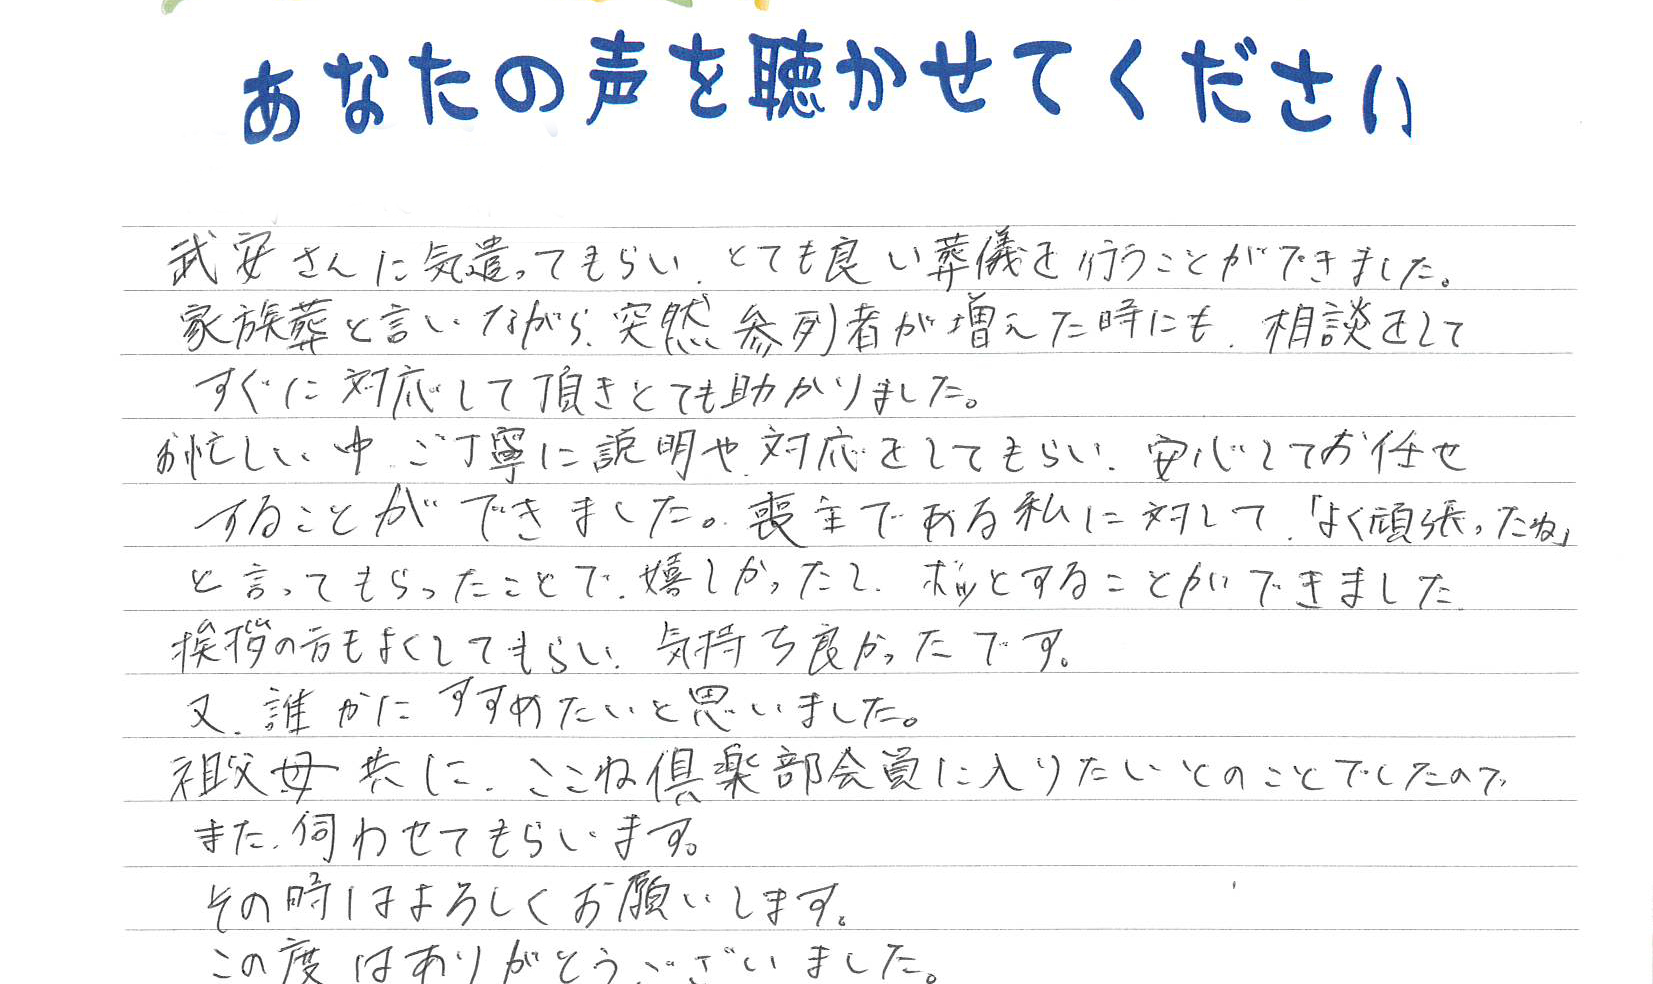 あなたの声を聴かせてください
武安さんに気遣ってもらい、とても良い葬儀を行うことができました。
家族葬と言いながら、突然参列者が増えた時にも、相談をして
すぐに対応して頂きとても助かりました。
お忙しい中、ご丁寧に説明や対応をしてもらい、安心してお任せ
することができました。喪主である私に対して、「よく頑張ったね」
と言ってもらったことで、嬉しかったし、ホッとすることができました
挨拶の方もよくしてもらい、気持ち良かったです。
又、誰かにすすめたいと思いました。
祖父母共に、ここね倶楽部会員に入りたいとのことでしたので
また、伺わせてもらいます。
その時はよろしくお願いします。
この度はありがとうございました。